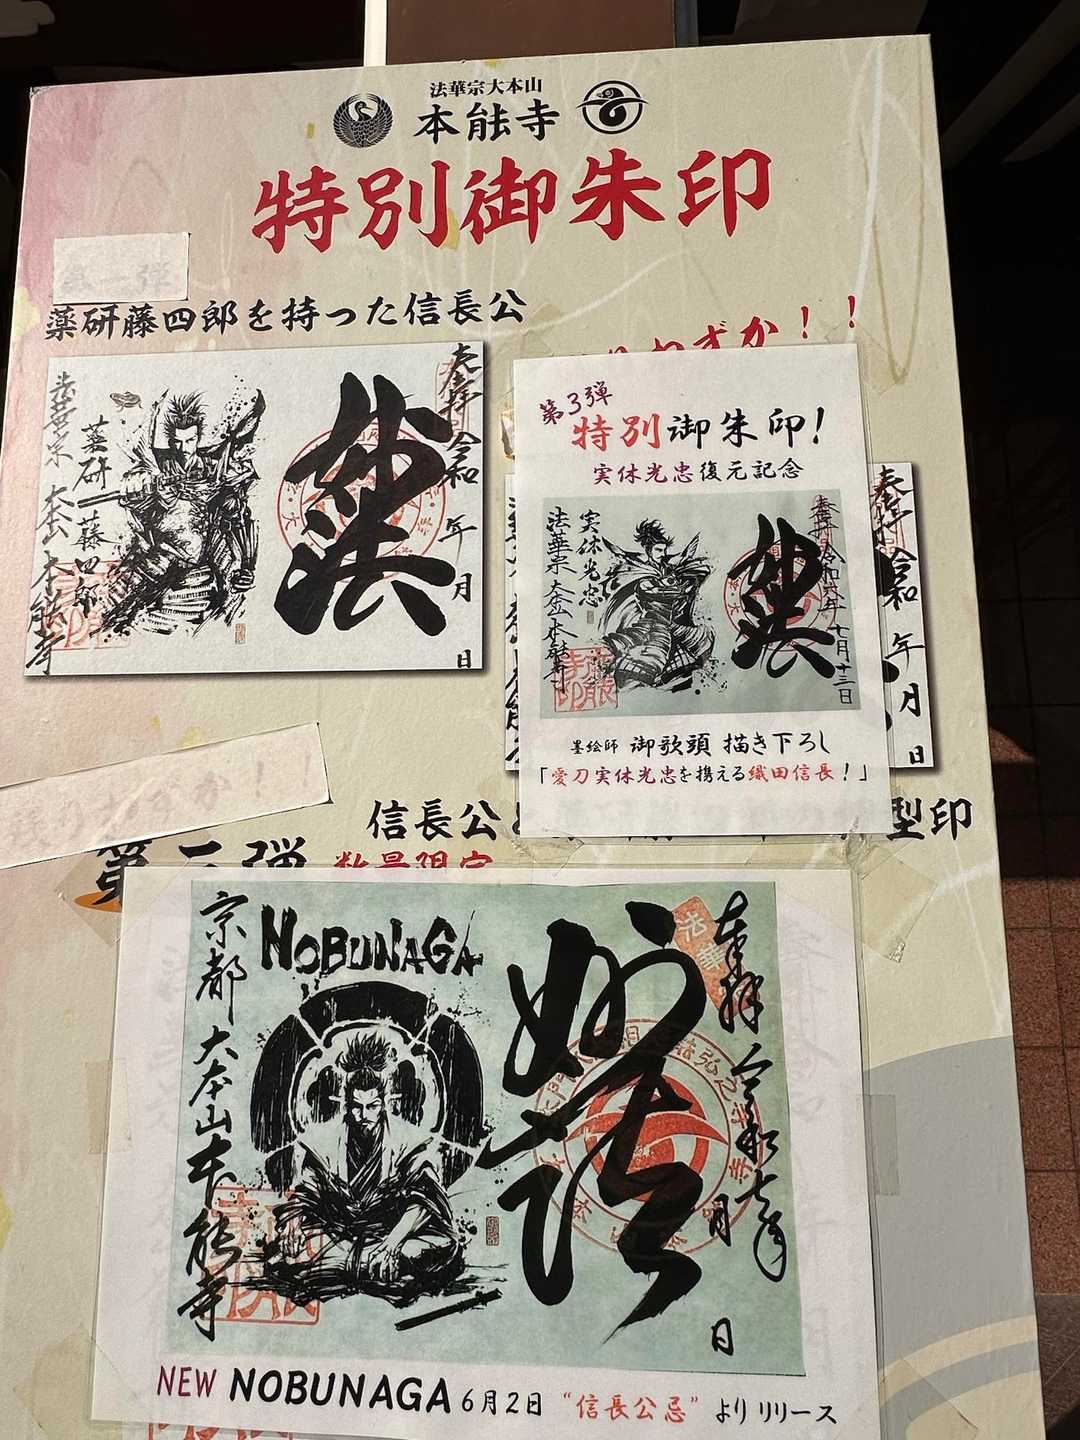 法華宗大本山
本能寺
特別御朱印
第一弾
薬研藤四郎を持った信長公
わずか！！
奉拝 令和 年 月 日
妙法
薬研藤四郎
法華宗 大本山 本能寺
第3弾
特別御朱印！
実休光忠復元記念
奉拝 令和六年 七月十三日
妙法
実休光忠
法華宗 大本山 本能寺
墨絵師 御歌頭 描き下ろし
「愛刀実休光忠を携える織田信長！」
奉拝 令和 年 月 日
わずか！！
信長公
型印
第二弾 数量限定
奉拝 令和七年 月 日
妙法
NOBUNAGA
京都 大本山 本能寺
NEW NOBUNAGA 6月2日 “信長公忌” よりリリース